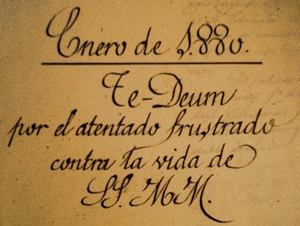 Enero de 1.880.
Te-Deum
por el atentado frustrado
contra la vida de
SS. MM.